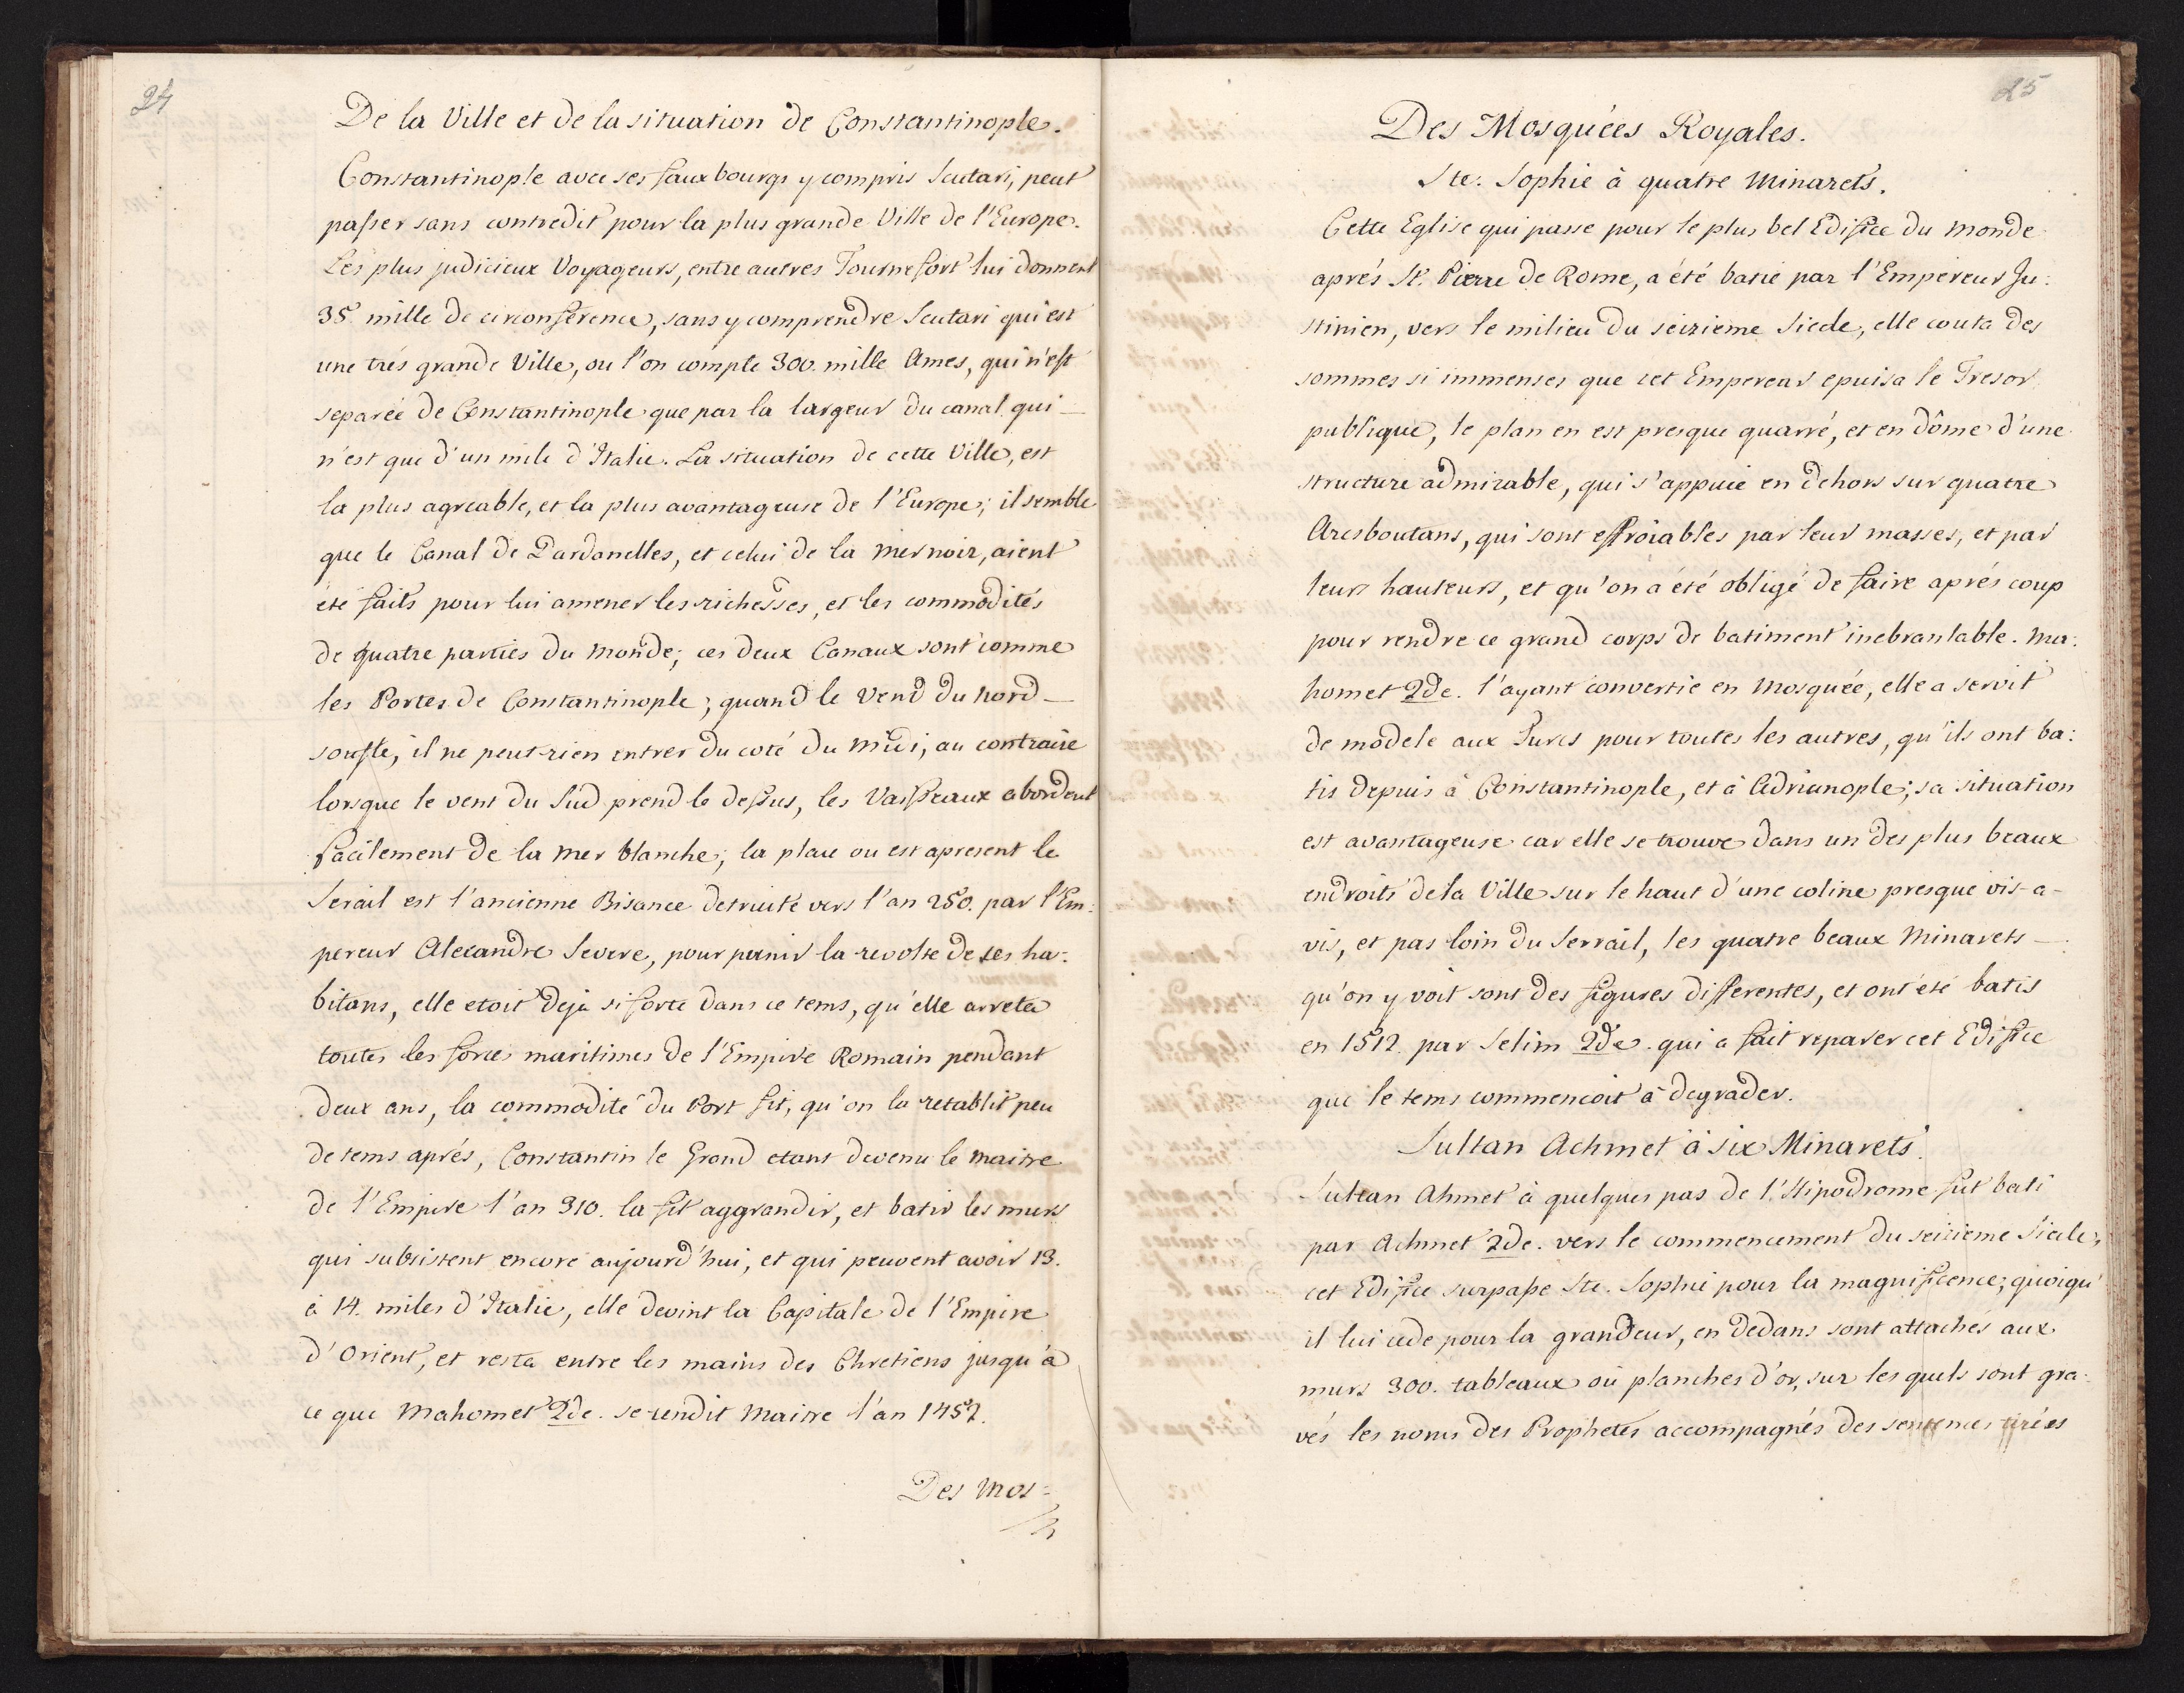 24
De la Ville et de la situation de Constantinople.
Constantinople avec ses fauxbourgs y compris Scutari, peut
passer sans contredit pour la plus grande Ville de l'Europe.
Les plus judicieux Voyageurs, entre autres Tournefort lui donnent
35 mille de circonference, sans y comprendre Scutari qui est
une trés grande Ville, ou l'on compte 300. mille Ames, qui n'est
separée de Constantinople que par la largeur du canal qui _
n'est que d'un mile d'Italie. La situation de cette Ville, est
la plus agreable, et la plus avantageuse de l'Europe; il semble
que le Canal de Dardanelles, et celui de la mer noir, aient
été faits pour lui amener les richesses, et les commodités
de quatre parties du monde; ces deux Canaux sont comme
les Portes de Constantinople; quand le vend du nord _
soufle, il ne peut rien entrer du coté du midi, au contraire
lorsque le vent du Sud prend le dessus, les Vaisseaux abordent
facilement de la mer blanche; la place ou est apresent le
Serail est l'ancienne Bisance detruite vers l'an 250. par l'Em:
pereur Alexandre Severe, pour punir la revolte de ses ha:
bitans, elle etoit deja si forte dans ce tems, qu'elle arreta
toutes les forces maritimes de l'Empire Romain pendant
deux ans, la commodité du Port fit, qu'on la retablit peu
de tems aprés, Constantin le Grand etant devenu le maitre
de l'Empire l'an 310. la fit aggrandir, et batir les murs
qui subsistent encore aujourd'hui, et qui peuvent avoir 13.
à 14. miles d'Italie, elle devint la Capitale de l'Empire
d'Orient, et resta entre les mains des Chretiens jusqu'a
ce que Mahomet 2de. se rendit Maitre l'an 1452.
Des Mos:
25
Des Mosquées Royales.
Ste. Sophie à quatre Minarets.
Cette Eglise qui passe pour le plus bel Edifice du monde
aprés St. Pierre de Rome, a été batie par l'Empereur Ju:
stinien, vers le milieu du seizieme Siecle, elle couta des
sommes si immenses que cet Empereur epuisa le Tresor
publique, le plan en est presque quarré, et en dôme d'une
structure admirable, qui s'appuie en dehors sur quatre
Arcsboutans, qui sont effroiables par leur masses, et par
leurs hauteurs, et qu'on a été obligé de faire aprés coup
pour rendre ce grand corps de batiment inebranlable. Ma:
homet 2de. l'ayant convertie en Mosquée, elle a servit
de modele aux Turcs pour toutes les autres, qu'ils ont ba:
tis depuis à Constantinople, et à Adrianople; sa situation
est avantageuse car elle se trouve dans un des plus beaux
endroits de la Ville sur le haut d'une coline presque vis-a-
vis, et pas loin du Serrail, les quatre beaux Minarets _
qu'on y voit sont des figures differentes, et ont été batis
en 1512. par Selim 2de. qui a fait reparer cet Edifice
que le tems commencoit à degrader.
Sultan Achmet à six Minarets.
Sultan Ahmet à quelques pas de l'Hipodrome fut bati
par Achmet 2de. vers le commencement du seizieme Siecle,
cet Edifice surpasse Ste. Sophie pour la magnificence; quoiqu'
il lui cede pour la grandeur, en dedans sont attachés aux
murs 300. tableaux ou planches d'or, sur les quels sont gra:
vés les noms des Prophetes accompagnés des sentences tirées